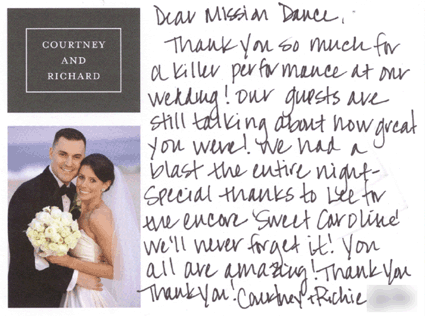 COURTNEY
AND
RICHARD
Dear Mission Dance,
Thank you so much for
a killer performance at our
wedding! Our guests are
still talking about how great
you were! We had a
blast the entire night-
special thanks to Lee for
the encore 'Sweet Caroline'
we'll never forget it! You
all are amazing! Thank you
Thank you! Courtney + Richie